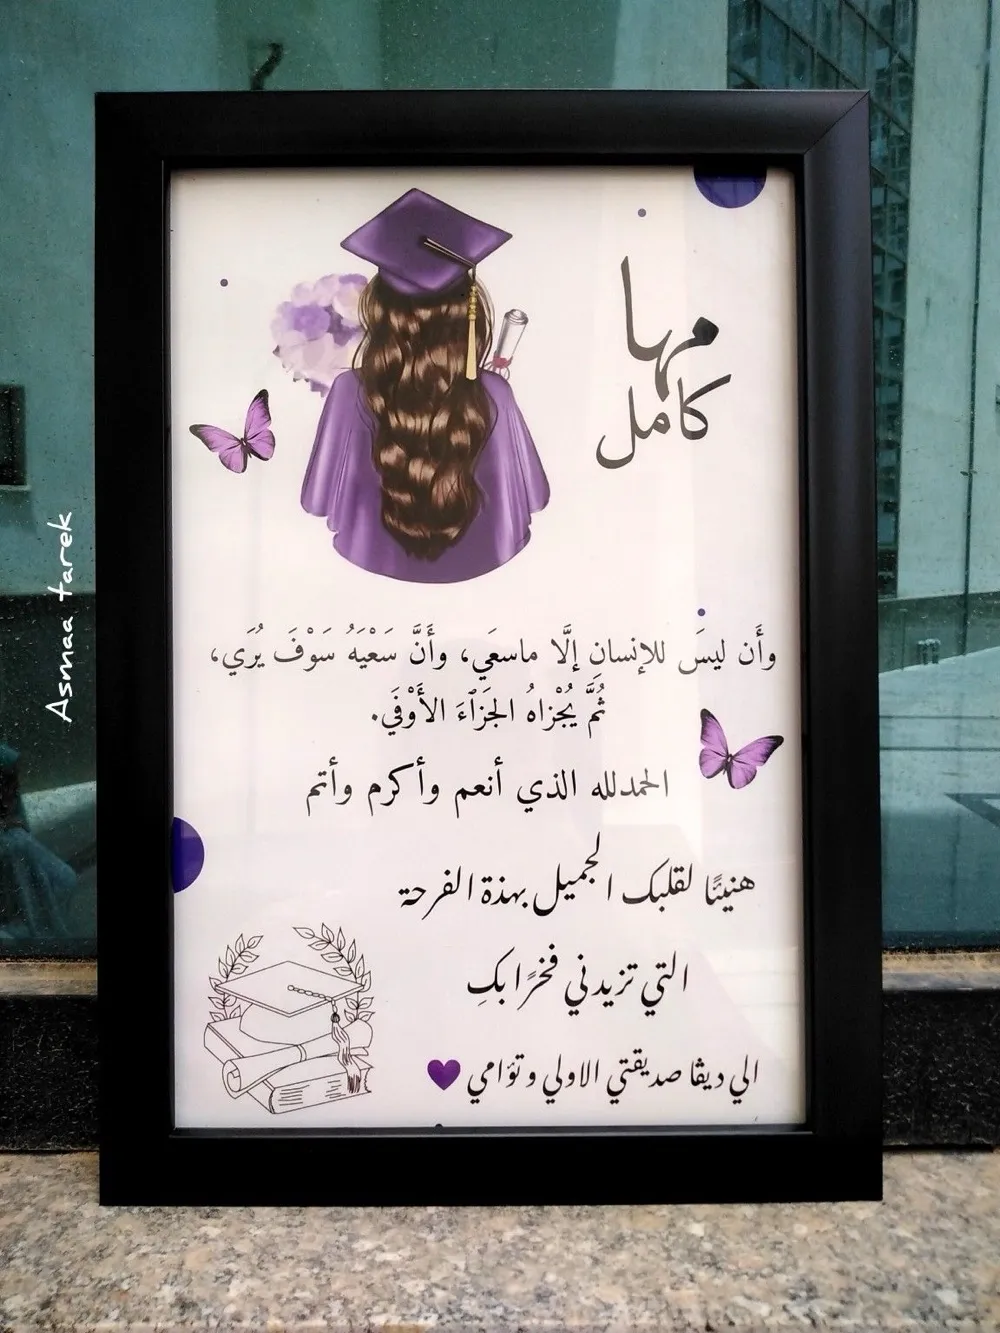 مها
كامل
وأَن ليسَ للإنسانِ إلَّا ماسعَي، وأَنَّ سَعْيَهُ سَوْفَ يُرَي،
ثُمَّ يُجْزاهُ الجَزآءَ الأَوْفَي.
الحمدلله الذي أنعم وأكرم وأتم
هنيئًا لقلبك الجميل بهذة الفرحة
التي تزيدني فخرًا بكِ
الي ديڤا صديقتي الاولي وتؤامي
Asmaa tarek